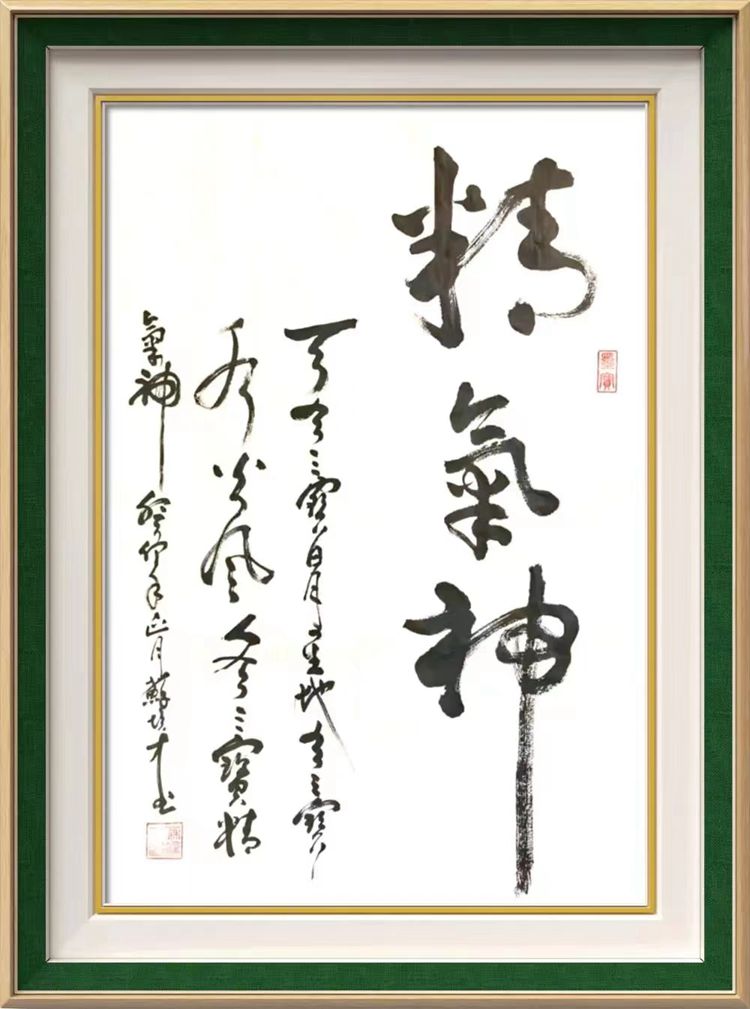 精氣神
天有三寶日月星地有三寶
水火風人有三寶精
氣神 癸卯年正月蘇 才书